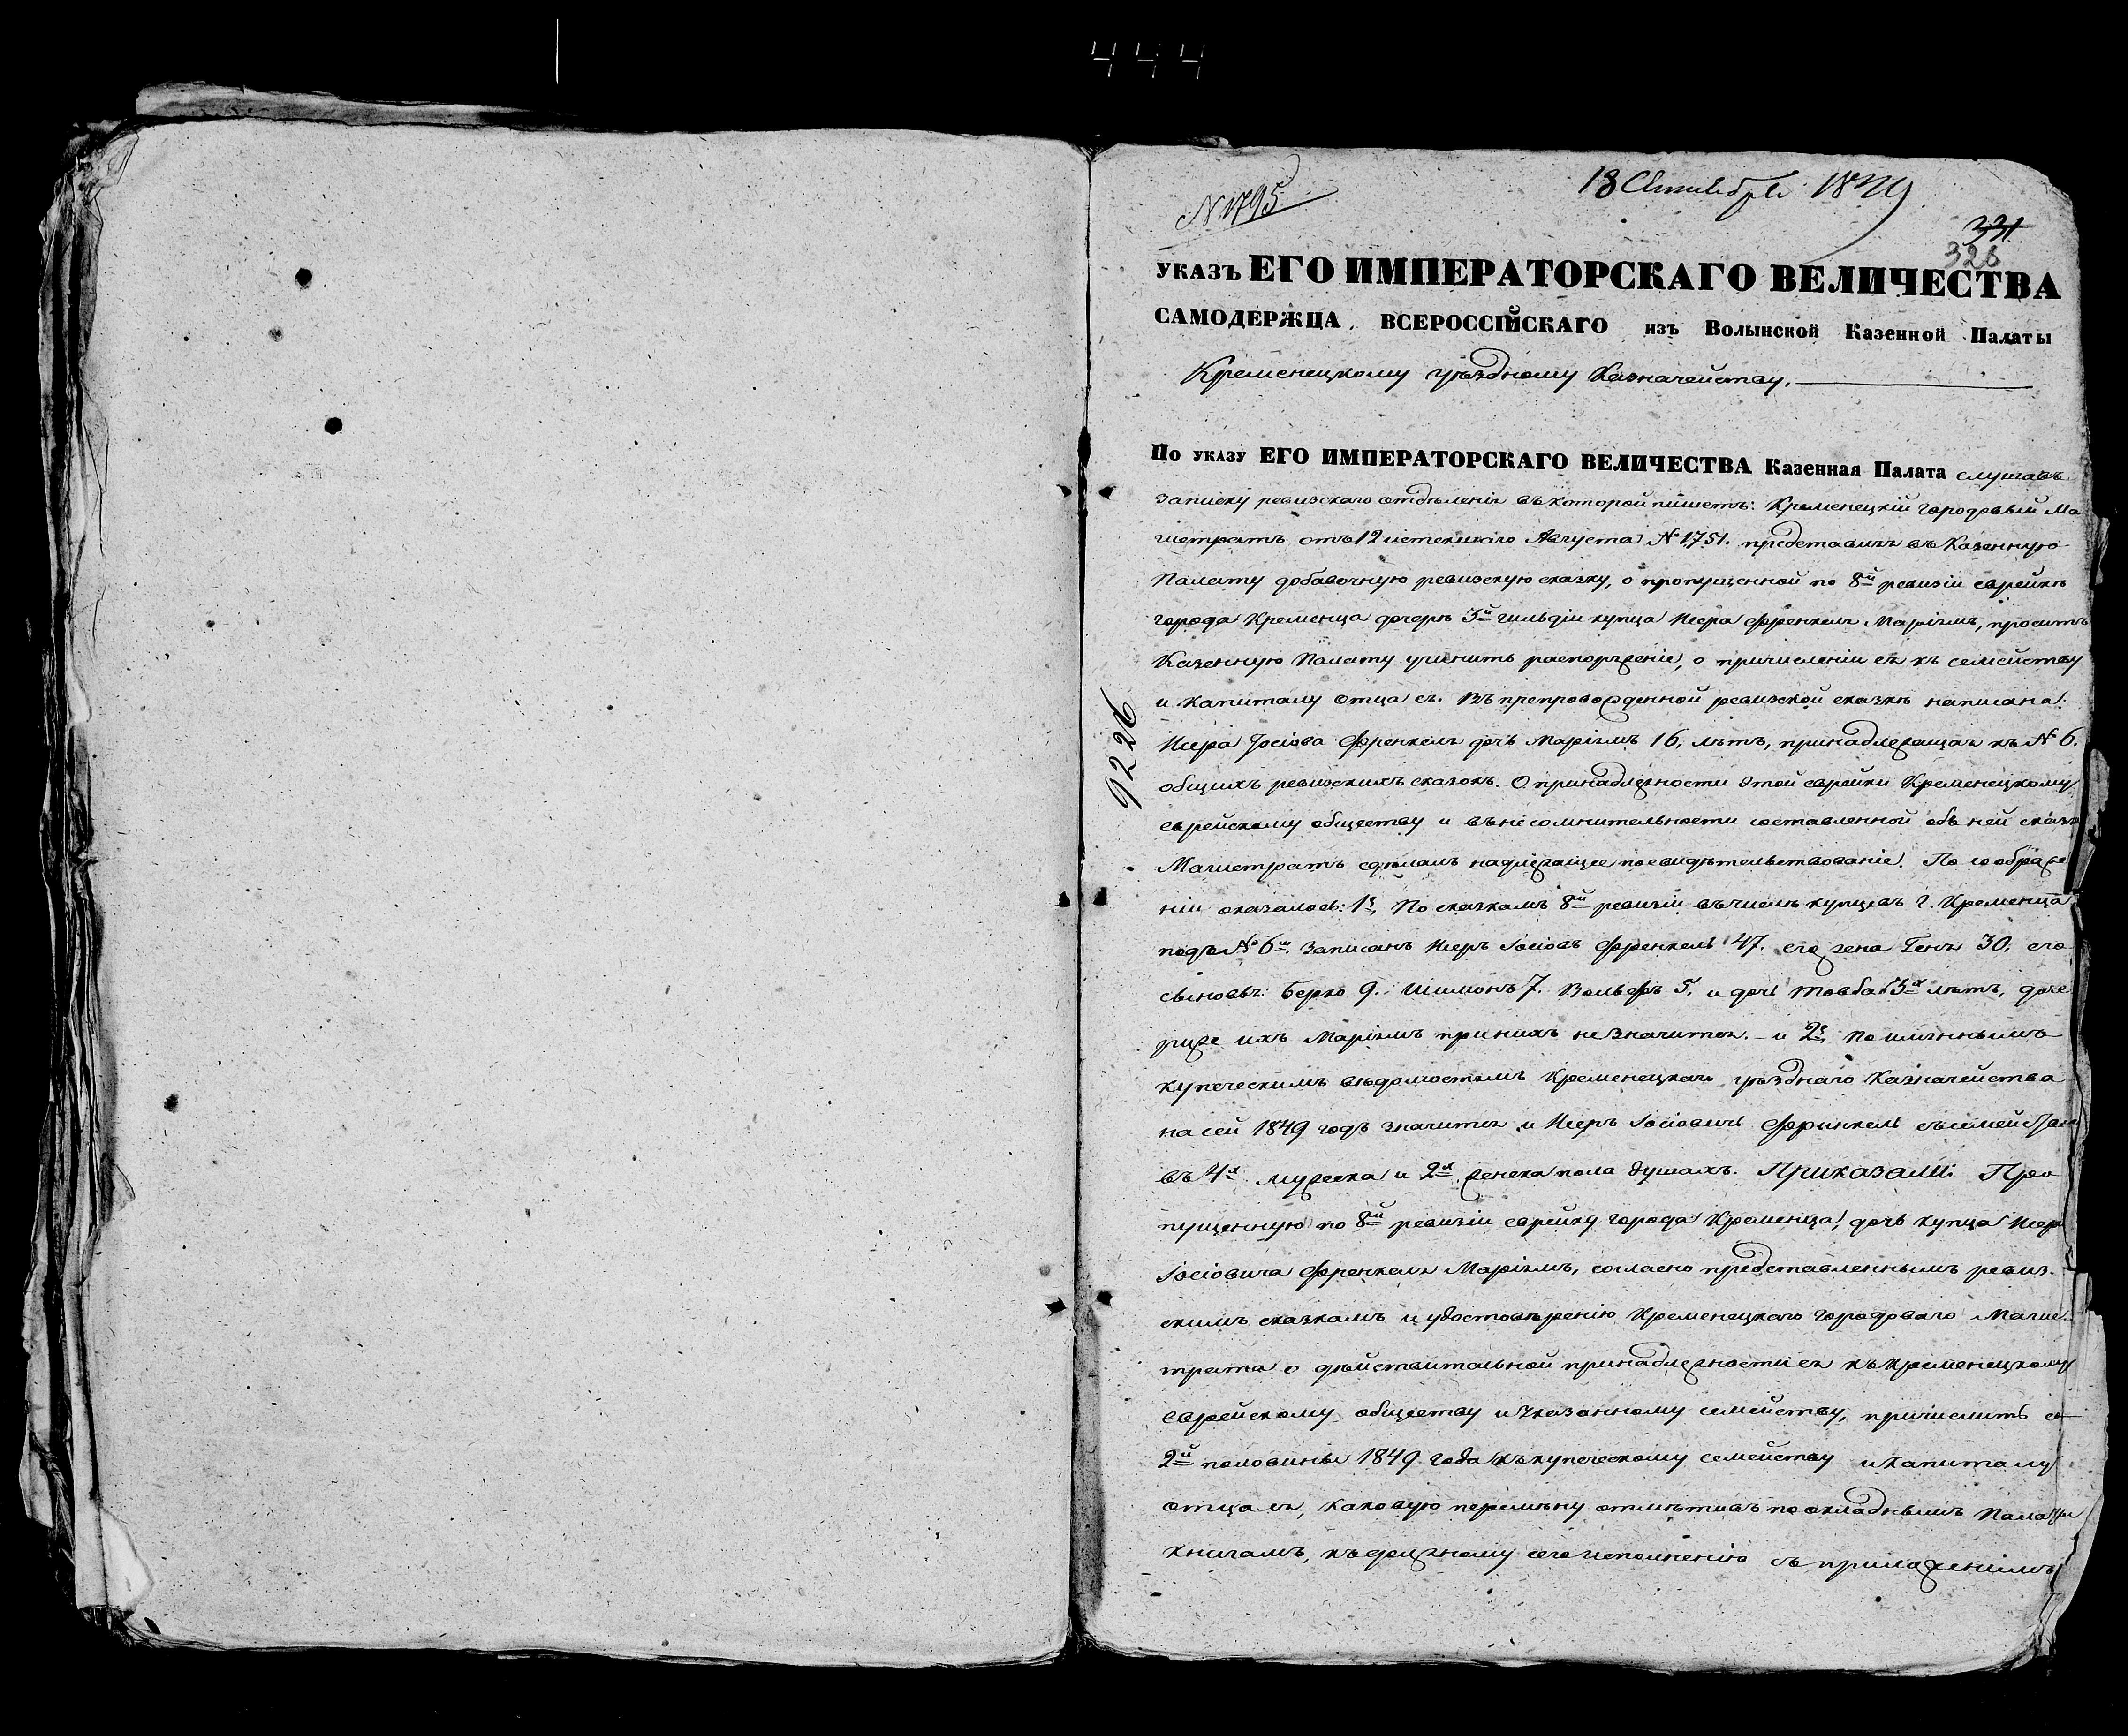 444
N 1795
18 Сентября 1849
331
326
УКАЗЪ ЕГО ИМПЕРАТОРСКАГО ВЕЛИЧЕСТВА
САМОДЕРЖЦА ВСЕРОССІЙСКАГО изъ Волынской Казенной Палаты
Кременецкому уѣздному Казначейству.
По указу ЕГО ИМПЕРАТОРСКАГО ВЕЛИЧЕСТВА Казенная Палата слушавъ
записку ревизскаго отдѣленія въ которой пишетъ: Кременецкій городовый Ма
гистратъ отъ 12 истекшаго Августа № 1751. представилъ въ Казенную
Палату добавочную ревизскую сказку, о пропущенной по 8й ревизіи еврейкѣ
города Кременца дочерѣ 3й гильдіи купца Исера Френкеля Маріямъ, проситъ
Казенную Палату учинить распоряженіе, о причисленіи ея къ семейству
и капиталу отца ея. Въ препровожденной ревизской сказкѣ написана:
Исера Іосіова Френкеля дочь Маріямъ 16, лѣтъ, принадлежащая къ № 6.
общихъ ревизскихъ сказокъ. О принадлежности этой еврейки Кременецкому
еврейскому обществу и въ несомнительности составленной объ ней сказки
Магистратъ сдѣлалъ надлежащее посвидѣтельствованіе. По соображе
ніи оказалось: 1е, По сказкамъ 8й ревизіи въ числѣ купцовъ г. Кременца
подъ № 6м. записанъ Исеръ Іосіовъ Френкель 47. его жена Геня 30. его
сыновья: Берко 9. Шимонъ 7. Вольфъ 5. и дочь Товба 3х лѣтъ, доче
ри же ихъ Маріямъ при нихъ не значится. – и 2е, По имяннымъ
купеческимъ вѣдомостямъ Кременецкаго уѣзднаго Казначейства
на сей 1849 годъ значится и Исеръ Іосіовичъ Френкель съ семейством
въ 4х мужеска и 2х женска пола душахъ. Приказали: Про
пущенную по 8й ревизіи еврейку города Кременца, дочь купца Исера
Іосіовича Френкеля Маріямъ, согласно представленнымъ ревиз-
скимъ сказкамъ и удостовѣренію Кременецкаго городоваго Магис-
трата о дѣйствительной принадлежности ея къ Кременецкому
Еврейскому обществу и указанному семейству, причислить со
2й половины 1849 года къ купеческому семейству и капиталу
отца ея, каковую перемѣну отмѣтивъ по окладнымъ Палаты
книгамъ, къ должному сего исполненію съ приложеніемъ
9226